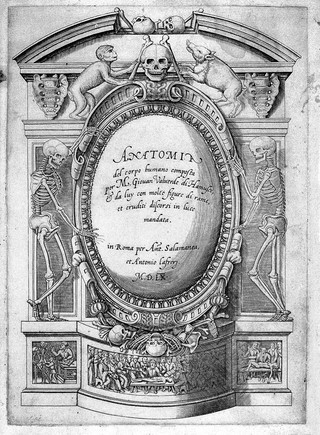 ANATOMIA
del corpo humano composta
per M. Giouan Valuerde di
& da luy con molte figure di rame,
et eruditi discorsi in luce
mandata.
in Roma per Ant. Salamanca,
et Antonio Lafrerj.
M.D.LX.